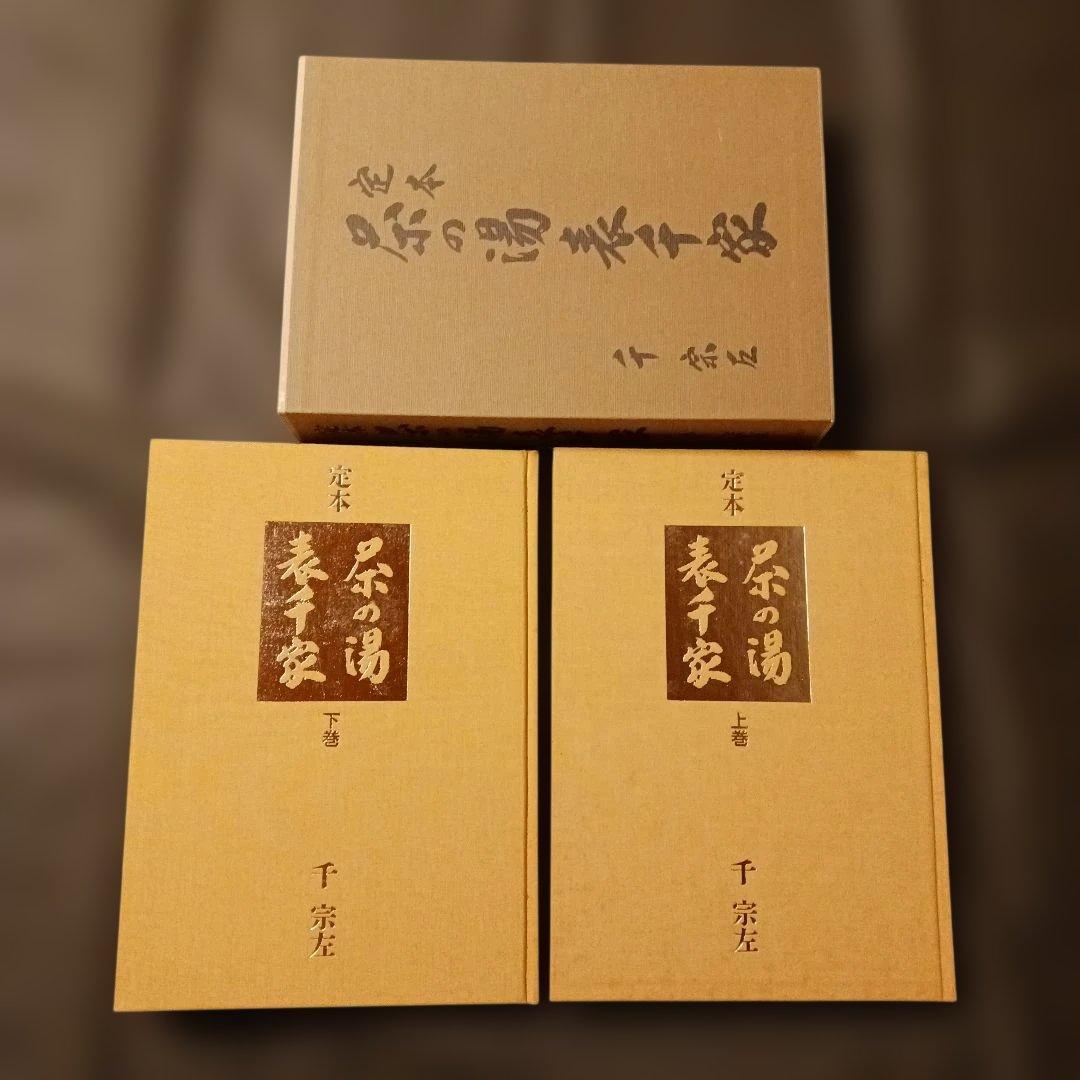 定本
茶の湯表千家
千宗左
定本茶の湯表千家
定本
茶の湯
表千家
下巻
千宗左
定本
茶の湯
表千家
上巻
千宗左